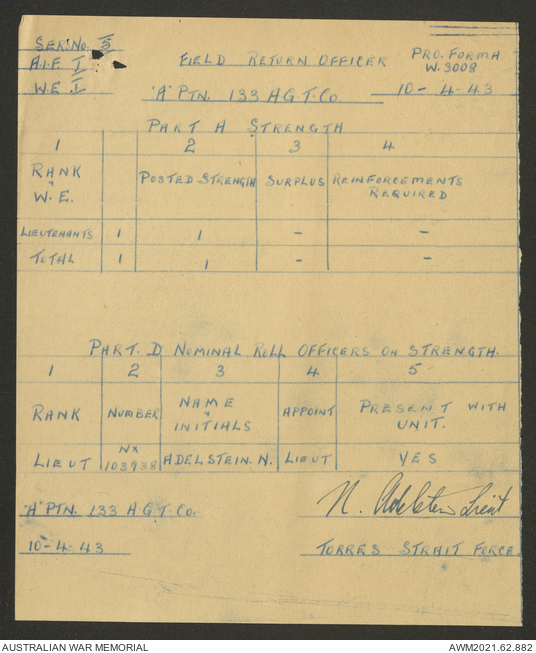 SER. NO. 5
A.I.F. I
W.E. I
FIELD RETURN OFFICER
PRO. FORMA
W. 3008
"A" PTN. 133 A G T. Co.
10-4-43
PART A STRENGTH
1 2 3 4
RANK
W.E.
POSTED STRENGTH
SURPLUS
REINFORCEMENTS
REQUIRED
LIEUTENANTS 1 1 - -
TOTAL 1 1 - -
PART. D NOMINAL ROLL OFFICERS ON STRENGTH.
1 2 3 4 5
RANK
NUMBER
NAME
INITIALS
APPOINT
PRESENT WITH
UNIT.
LIEUT
NX
103938
ADELSTEIN. N. LIEUT YES
"A" PTN. 133 A G T. Co.
N. Adelstein Lieut
10-4-43
TORRES STRAIT FORCE
AUSTRALIAN WAR MEMORIAL
AWM2021.62.882